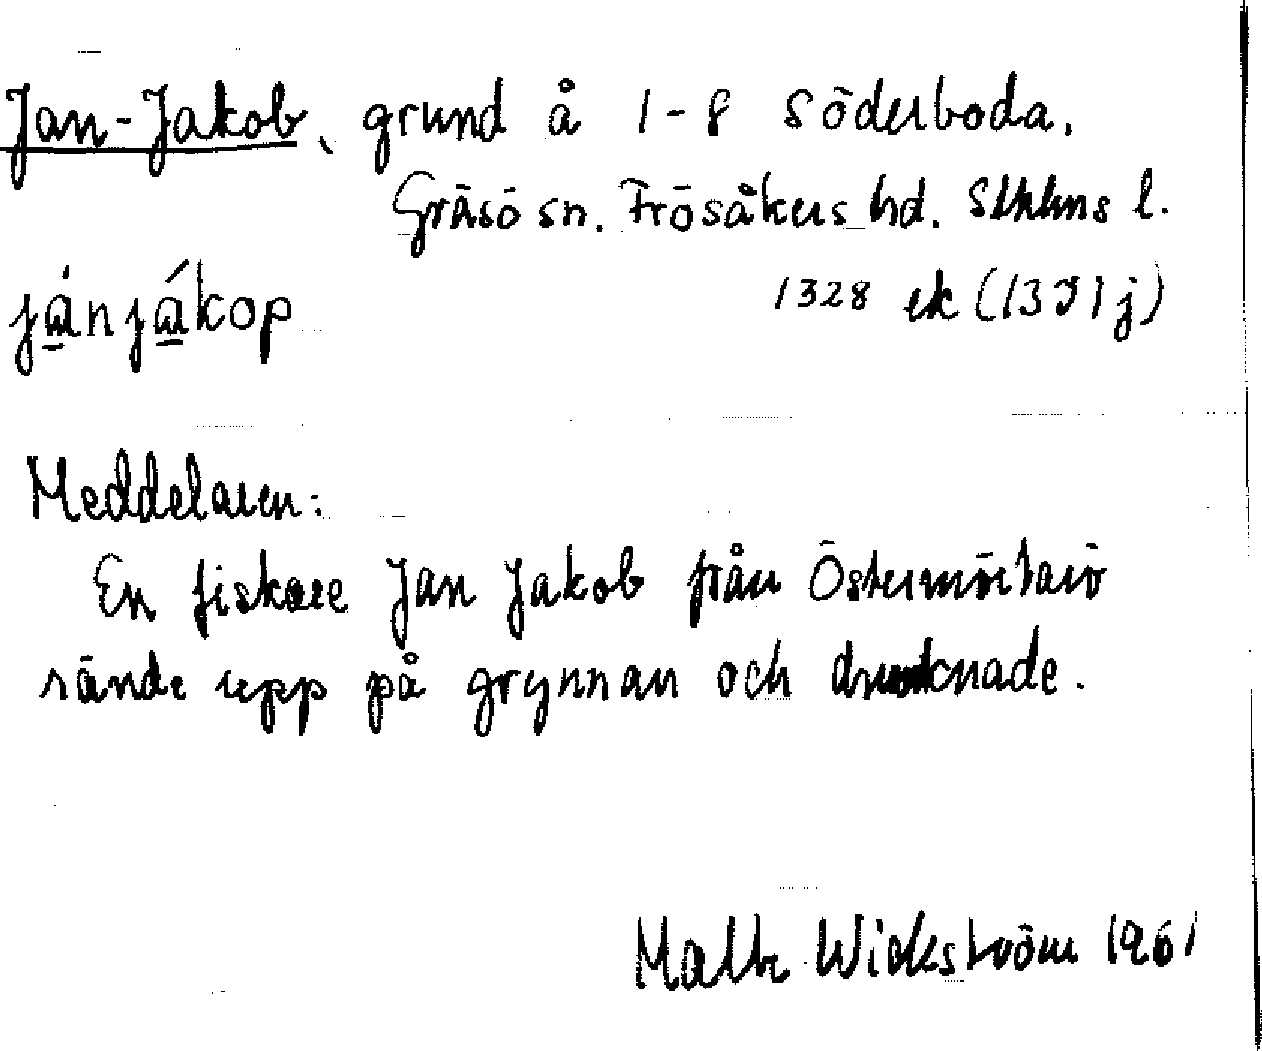 Jan-Jakob, grund å 1-8 Söderboda,
Gräsö sn. Frösåkers hd. Sthlms l.
jánjákop 1328 ek (13J1j)
Meddelaren:
En fiskare Jan Jakob från Östermörtarö
rände upp på grynnan och drunknade.
Matts Wickström 1961